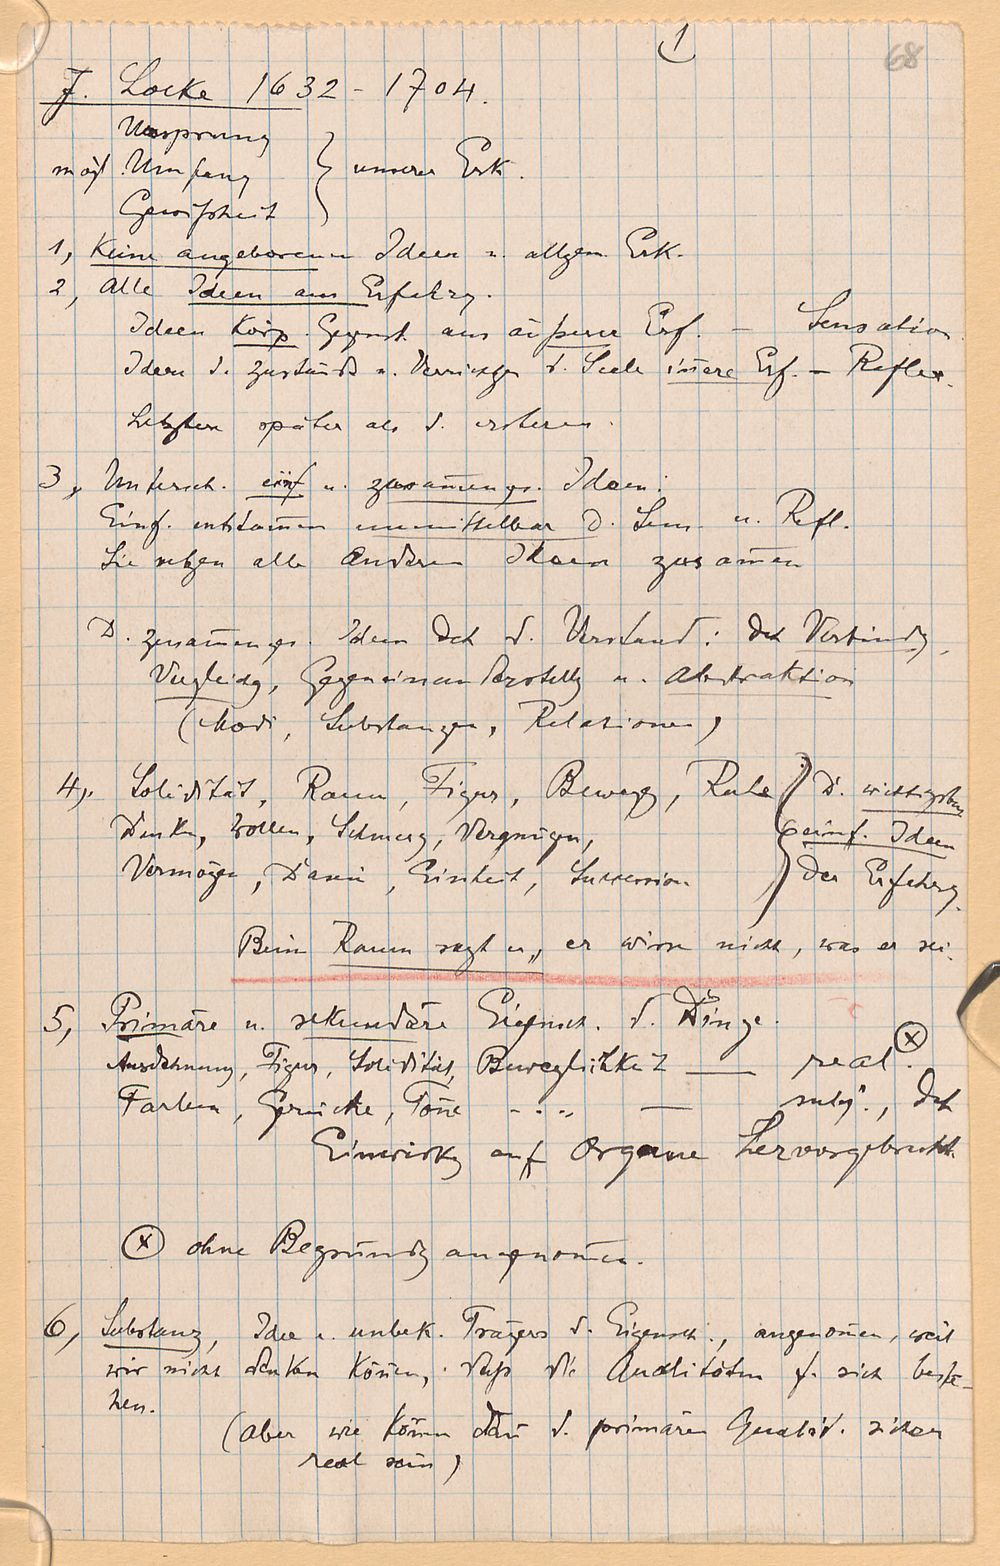 1
68
J. Locke 1632 - 1704.
Ursprung
mögl. Umfang } unserer Erk.
Gewißheit
1, Keine angeborenen Ideen u. allgem. Erk.
2, Alle Ideen aus Erfahrg.
Ideen körp. Gegenst. aus äußerer Erf. — Sensation
Ideen d. Zustände u. Verrichtgen d. Seele innere Erf. — Reflex.
Letztere später als d. ersteren.
3, Untersch. einf. u. zusam̄enges. Ideen.
Einf. entstam̄en unmittelbar d. Sens. u. Refl.
Sie setzen alle anderen Ideen zusam̄en
D. zusam̄enges. Ideen dch d. Verstand: dch Verbindg,
Vergleichg, Gegeneinanderstellg u. Abstraktion
(Modi, Substanzen, Relationen)
4). Solidität, Raum, Figur, Bewegg, Ruhe } D. wichtigsten
Denken, Wollen, Schmerz, Vergnügen, einf. Ideen
Vermögen, Dasein, Einheit, Succession der Erfahrg.
Beim Raum sagt er, er wisse nicht, was er sei.
5, Primäre u. sekundäre Eigensch. d. Dinge.
Ausdehnung, Figur, Solidität, Beweglichkeit — real. ⓧ
Farben, Gerüche, Töne - . . . — subj., dch
Einwirkg auf Organe hervorgebracht.
ⓧ ohne Begründg angenom̄en.
6, Substanz, Idee e. unbek. Trägers d. Eigensch., angenom̄en, weil
wir nicht denken kön̄en, daß die Qualitäten f. sich beste-
hen.
(Aber wie kön̄en dan̄ d. primären Qualit. sicher
real sein)